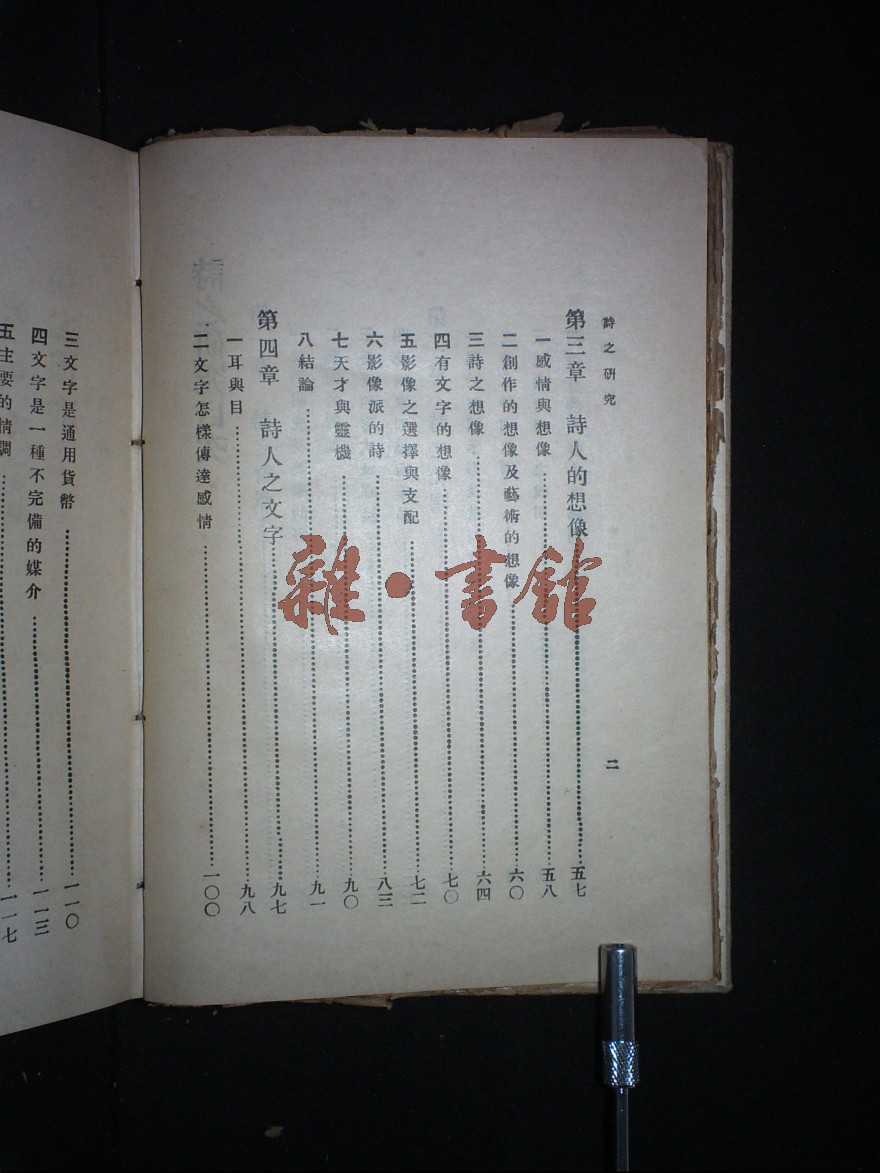 詩之研究
二
第三章 詩人的想像……五七
一 感情與想像……五八
二 創作的想像及藝術的想像……六〇
三 詩之想像……六四
四 有文字的想像……七〇
五 影像之選擇與支配……七二
六 影像派的詩……八三
七 天才與靈機……九〇
八 結論……九一
第四章 詩人之文字……九七
一 耳與目……九八
二 文字怎樣傳達感情……一〇〇
三 文字是通用貨幣……一一〇
四 文字是一種不完備的媒介……一一三
五 主要的情調……一一七
雜·書館